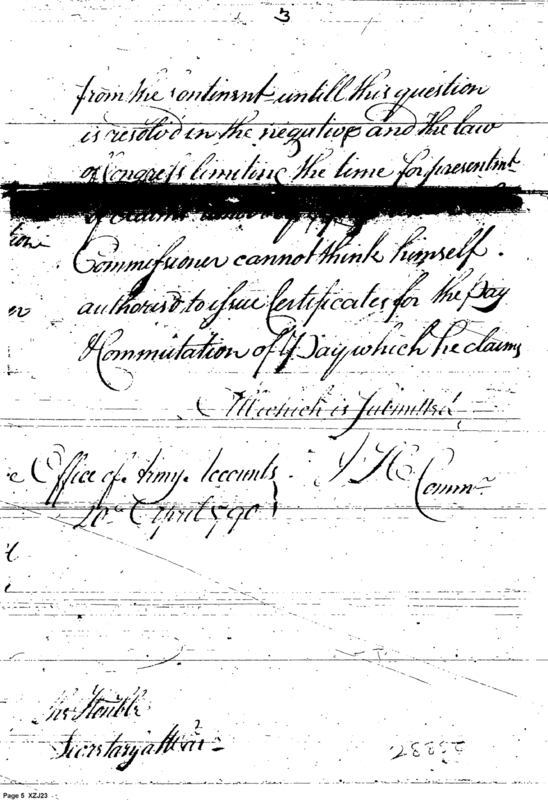 3
from the Continent untill this question
is resolved in the negative and the law
of Congress limiting the time for presentment
of claims
tion
Commissioner cannot think himself
authorised to issue Certificates for the Pay
er
& Commutation of Pay which he claims
All which is submitted
Office of Army Accounts
J H Commr
20th April 1790
The Honble
Secretary at War
Page 5 XZJ23